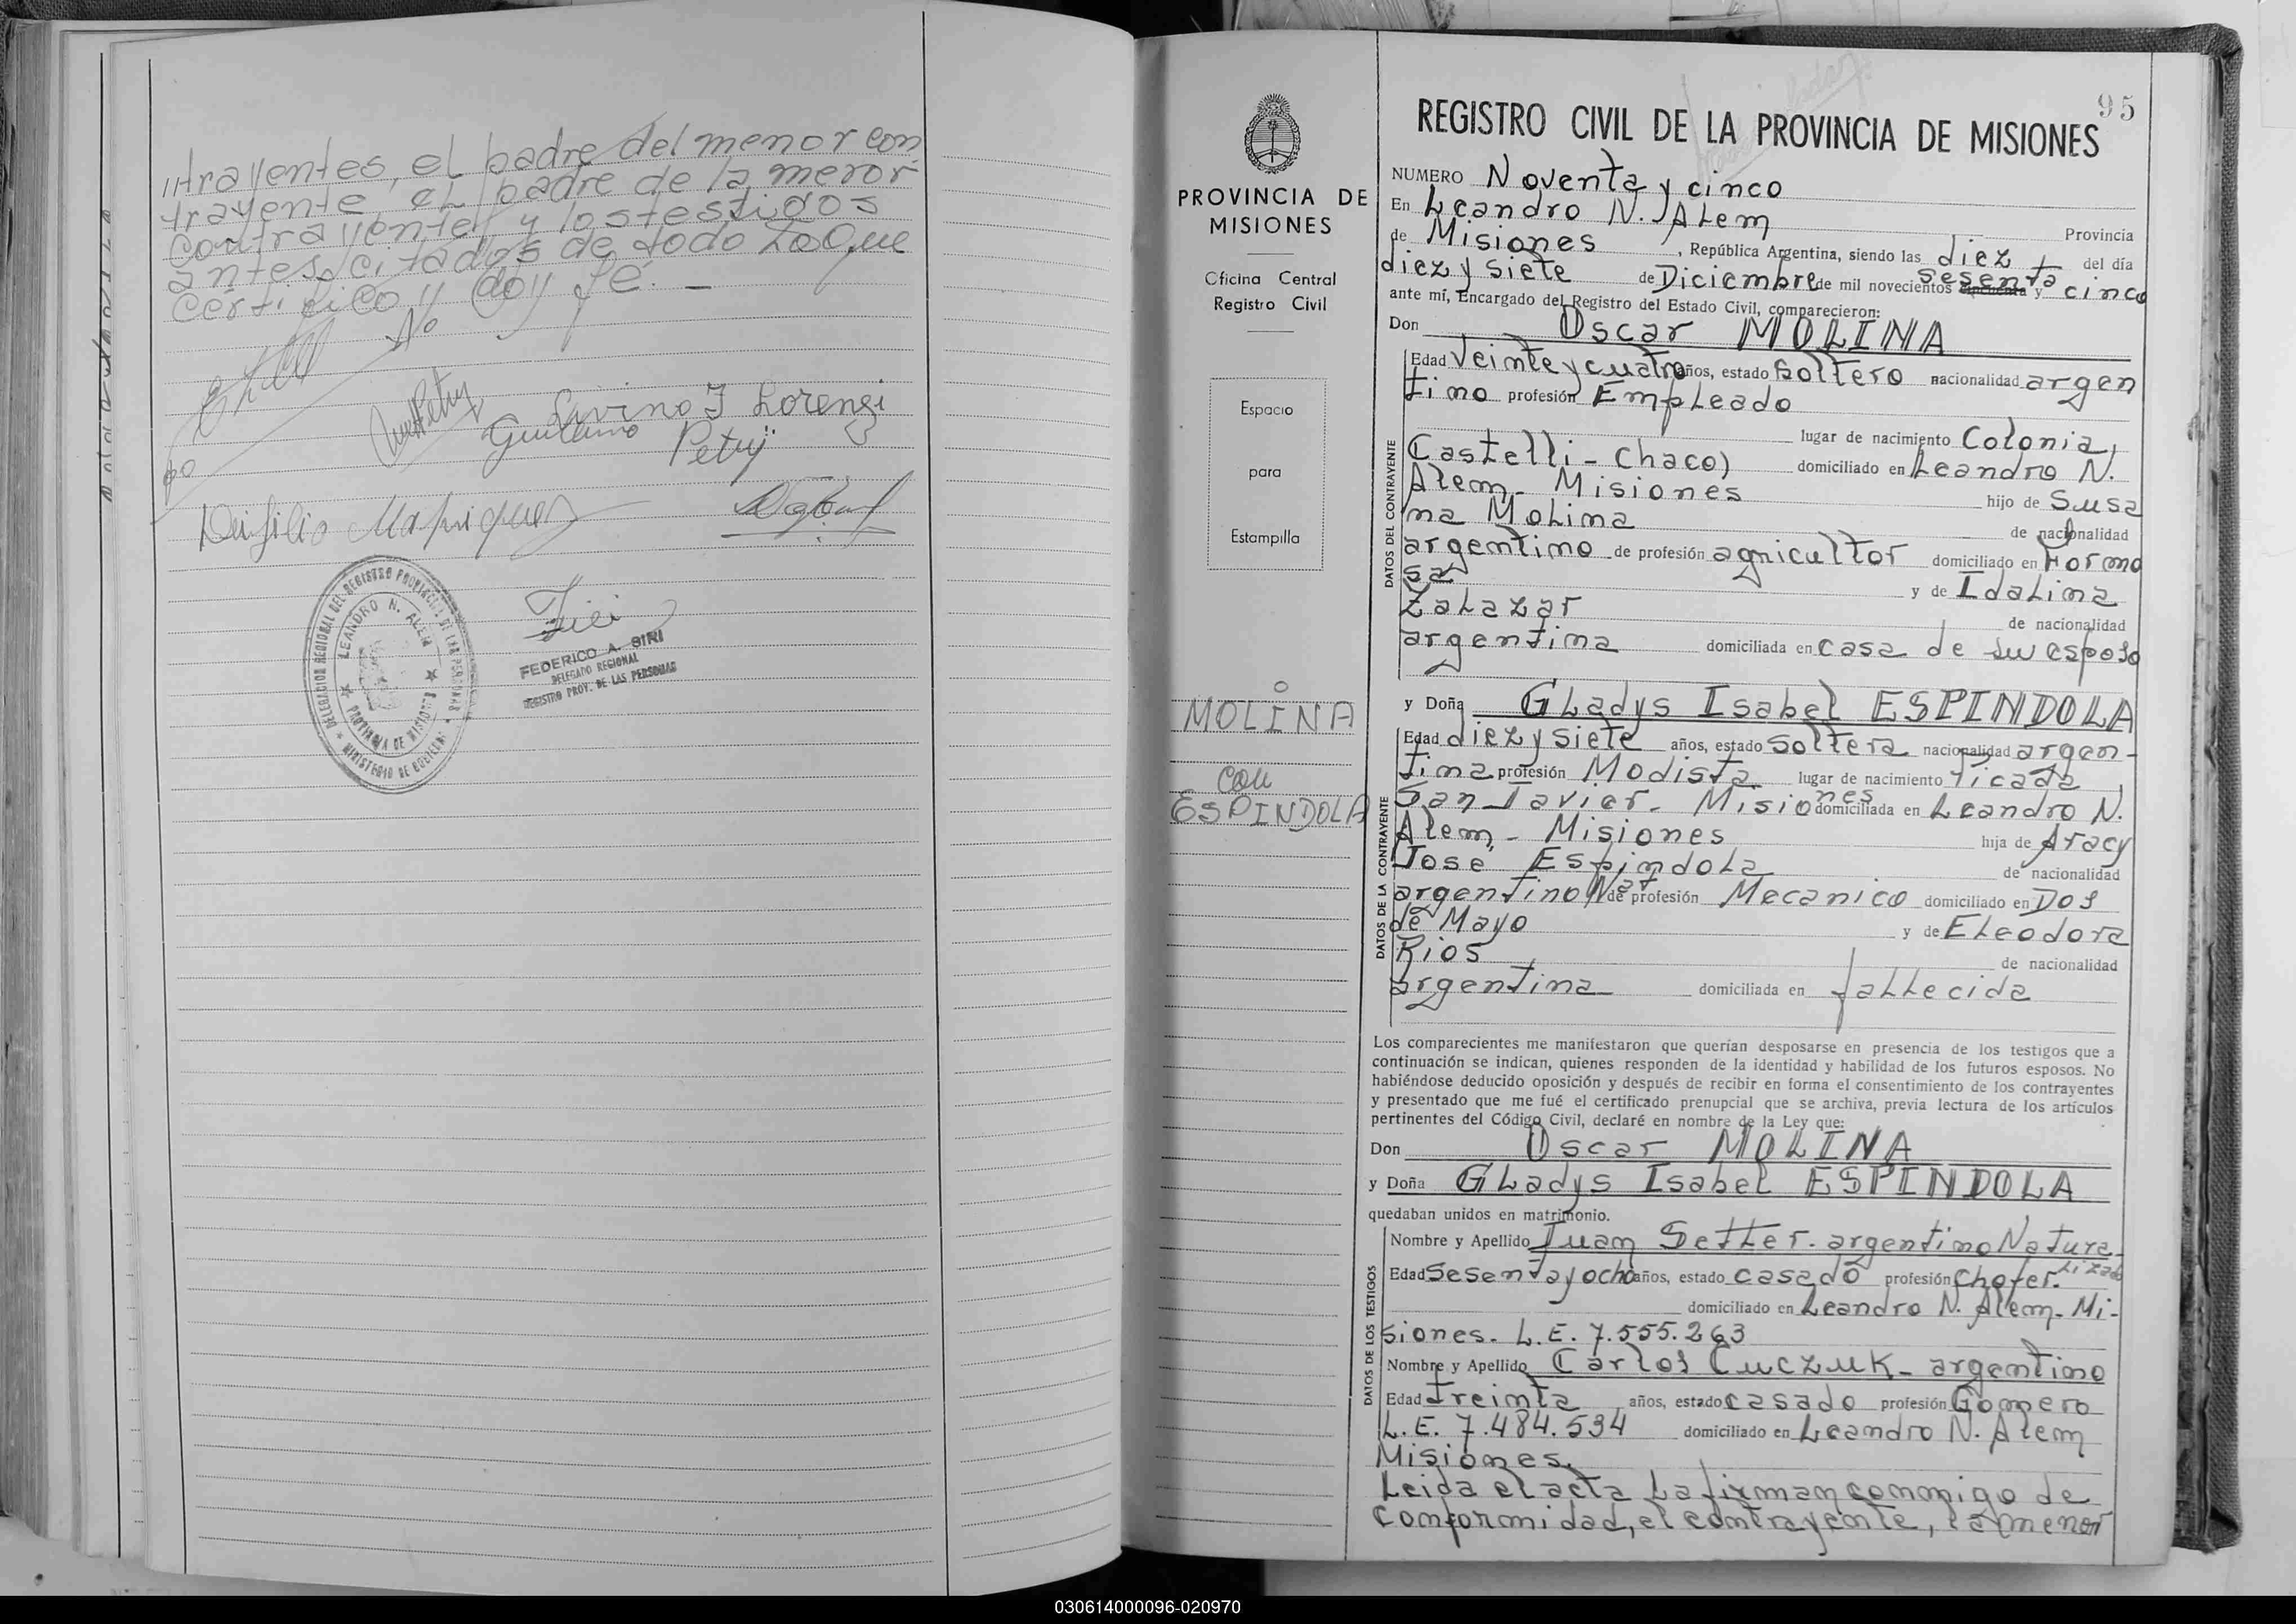 ntrayentes, el padre del menor con
trayente, el padre de la menor
contrayente y los testigos
antes citados de todo Lo Que
certifico y doy fé. —
Livino J Lorenzi
Guillermo Petry
FEDERICO A. SIRI
DELEGADO REGIONAL
REGISTRO PROV. DE LAS PERSONAS
DELEGACION REGIONAL DEL REGISTRO PROVINCIAL DE LAS PERSONAS
LEANDRO N. ALEM
PROVINCIA DE MISIONES
MINISTERIO DE GOBIERNO
PROVINCIA DE
MISIONES
Oficina Central
Registro Civil
Espacio
para
Estampilla
MOLINA
con
ESPINDOLA
95
REGISTRO CIVIL DE LA PROVINCIA DE MISIONES
NUMERO Noventa y cinco
En Leandro N. Alem
Provincia
de Misiones, República Argentina, siendo las diez del día
diez y siete de Diciembre de mil novecientos cincuenta sesenta y cinco
ante mí, Encargado del Registro del Estado Civil, comparecieron:
Don Oscar MOLINA
DATOS DEL CONTRAYENTE
Edad Veinte y cuatro años, estado Soltero nacionalidad argen
tino profesión Empleado
lugar de nacimiento Colonia
Castelli - Chaco) domiciliado en Leandro N.
Alem - Misiones hijo de Susa
na Molina de nacionalidad
argentino de profesión agricultor domiciliado en Formo
sa y de Idalina
Zalazar de nacionalidad
argentina domiciliada en casa de su esposo
y Doña Gladys Isabel ESPINDOLA
DATOS DE LA CONTRAYENTE
Edad diez y siete años, estado Soltera nacionalidad argen-
tina profesión Modista lugar de nacimiento ricada
San Javier - Misiones domiciliada en Leandro N.
Alem - Misiones hija de Aracy
José Espindola de nacionalidad
argentino Nat de profesión Mecanico domiciliado en Dos
de Mayo y de Eleodora
Rios de nacionalidad
argentina domiciliada en fallecida
Los comparecientes me manifestaron que querían desposarse en presencia de los testigos que a
continuación se indican, quienes responden de la identidad y habilidad de los futuros esposos. No
habiéndose deducido oposición y después de recibir en forma el consentimiento de los contrayentes
y presentado que me fué el certificado prenupcial que se archiva, previa lectura de los artículos
pertinentes del Código Civil, declaré en nombre de la Ley que:
Don Oscar MOLINA
y Doña Gladys Isabel ESPINDOLA
quedaban unidos en matrimonio.
DATOS DE LOS TESTIGOS
Nombre y Apellido Juan Setter. argentino Natura-
lizado
Edad Sesenta y ocho años, estado casado profesión Chofer.
domiciliado en Leandro N. Alem - Mi-
siones. L.E. 7.555.263
Nombre y Apellido Carlos Cuczuk - argentino
Edad Treinta años, estado casado profesión Gomero
L.E. 7.484.534 domiciliado en Leandro N. Alem
Misiones.
Leida el acta La firman conmigo de
conformidad, el contrayente, la menor
030614000096-020970